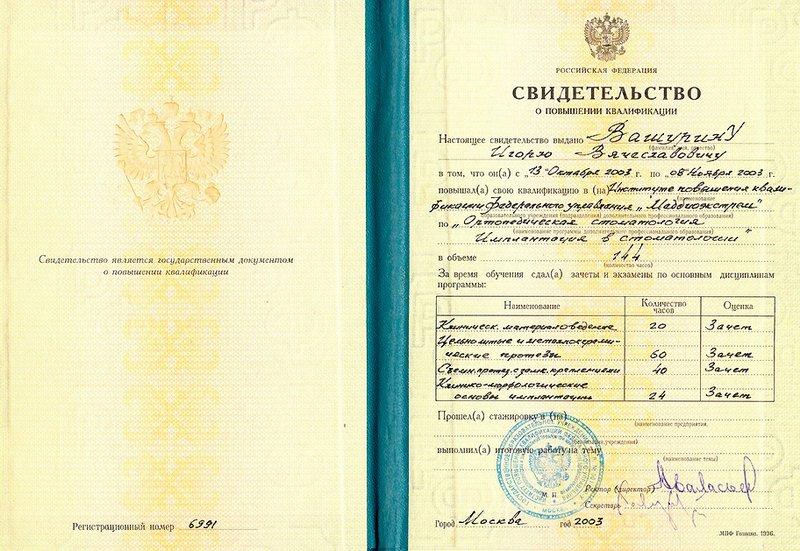 Свидетельство является государственным документом
о повышении квалификации
Регистрационный номер 6991
РОССИЙСКАЯ ФЕДЕРАЦИЯ
СВИДЕТЕЛЬСТВО
О ПОВЫШЕНИИ КВАЛИФИКАЦИИ
Настоящее свидетельство выдано Вашурину
(фамилия, имя, отчество)
Игорю Вячеславовичу
в том, что он(а) с „13" Октября 2003 г. по „08" Ноября 2003 г.
повышал(а) свою квалификацию в (на) Институте повышения квали-
(наименование
фикации Федерального управления „Медбиоэкстрем"
образовательного учреждения (подразделения) дополнительного профессионального образования)
по „Ортопедическая стоматология
(наименование программы дополнительного профессионального образования)
Имплантация в стоматологии"
в объеме 144
(количество часов)
За время обучения сдал(а) зачеты и экзамены по основным дисциплинам
программы:
Наименование Количество часов Оценка
Клиническ. материаловедение 20 Зачет
Цельнолитые и металлокерами-
ческие протезы 60 Зачет
Съемн. протез. с замк. креплениями 40 Зачет
Клинико-морфологические
основы имплантации 24 Зачет
Прошел(а) стажировку в (на)
(наименование предприятия,
организации, учреждения)
выполнил(а) итоговую работу на тему
(наименование темы)
М. П.
Ректор (директор)
Секретарь
Город Москва год 2003
МПФ Гознака. 1996.